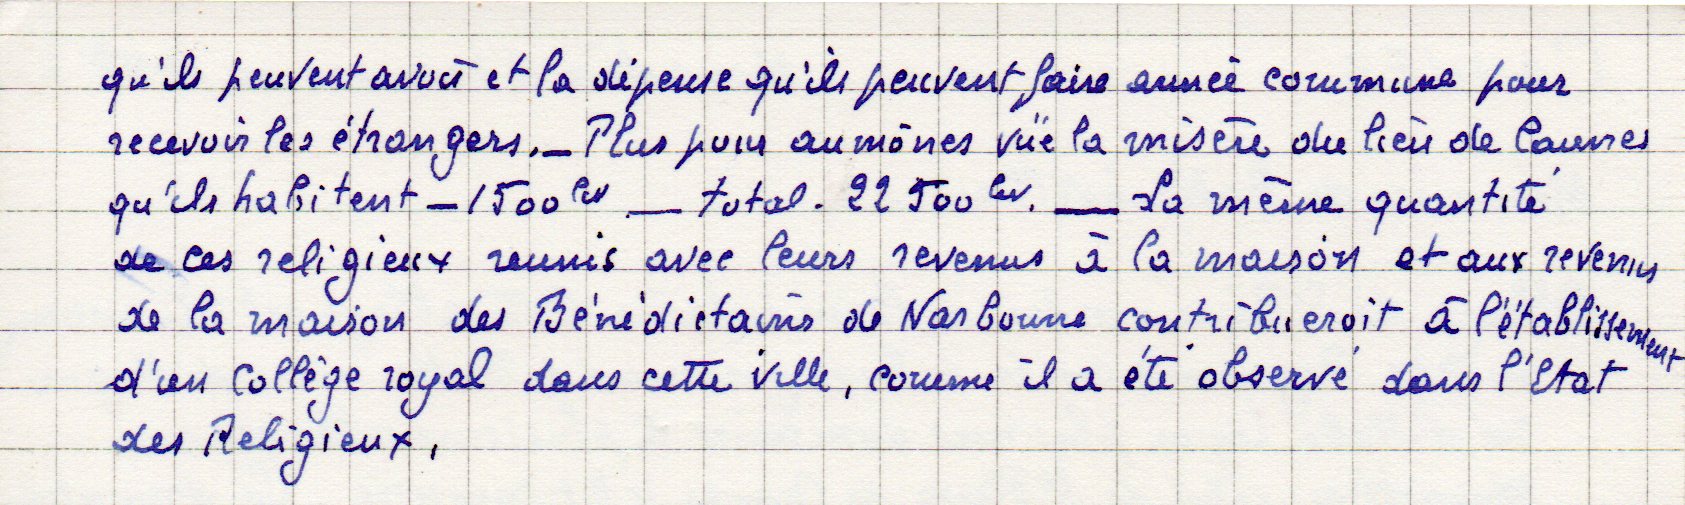 qu'ils peuvent avoir et la dépense qu'ils peuvent faire année commune pour
recevoir les étrangers. _ Plus pour aumônes vüe la misère du lieu de Caunes
qu'ils habitent _ 1500 liv __ total. 22 500 liv. __ La même quantité
de ces religieux reunis avec leurs revenus à la maison et aux revenus
de la maison des Bénédictains de Narbonne contribueroit à l'établissement
d'un Collège royal dans cette ville, comme il a été observé dans l'Etat
des Religieux.